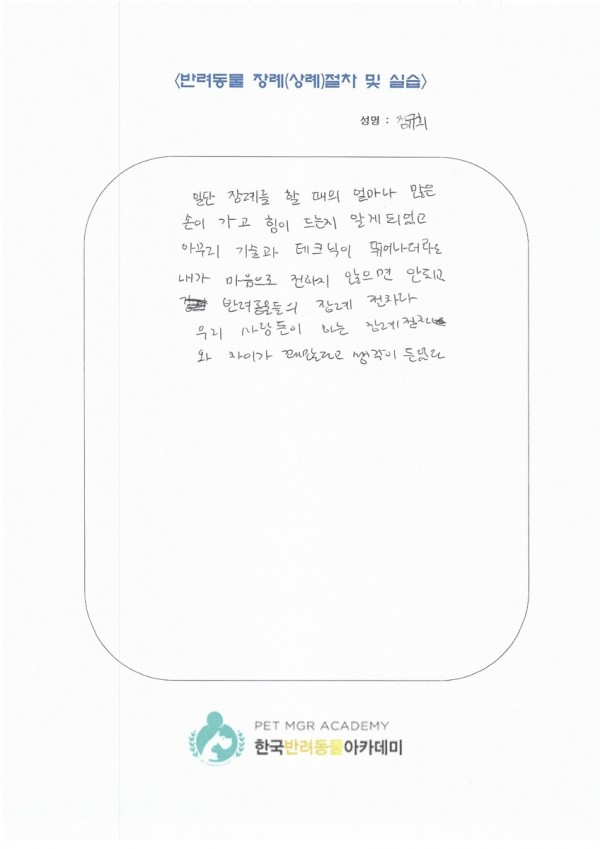 <반려동물 장례(상례)절차 및 실습>
성명 :
일단 장례를 할 때의 얼마나 많은
손이 가고 힘이 드는지 알게되었고
아무리 기술과 테크닉이 뛰어나더라도
내가 마음으로 전하지 않으면 안되고
반려동물들의 장례 절차나
우리 사람들이 하는 장례절차
와 차이가 꽤많다고 생각이 든었다
PET MGR ACADEMY
한국반려동물아카데미